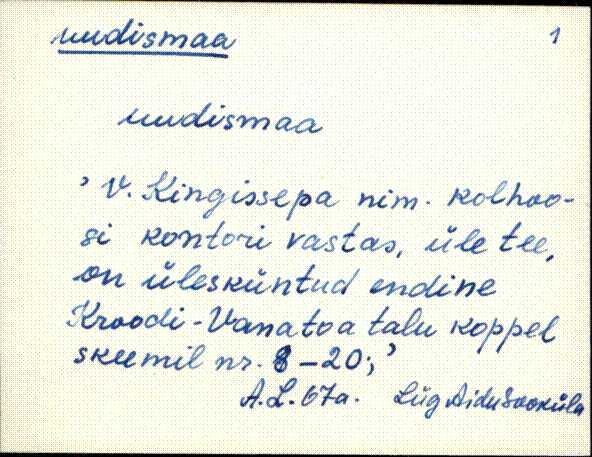 uudismaa 1
uudismaa
' V. Kingissepa nim. kolhoo-
si kontori vastas, üle tee,
on ülesküntud endine
Kroodi-Vanatoa talu koppel
skeemil nr. 8-20;'
A.L. 67a. Lüg Aidu Sooküla